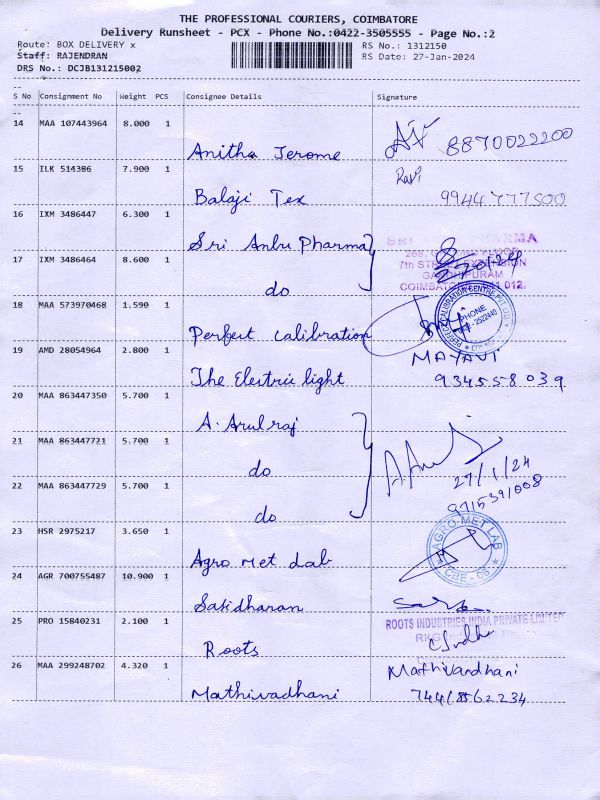 THE PROFESSIONAL COURIERS, COIMBATORE
Delivery Runsheet - PCX - Phone No.:0422-3505555 - Page No.:2
Route: BOX DELIVERY x
RS No.: 1312150
Staff: RAJENDRAN
RS Date: 27-Jan-2024
DRS No.: DCJB131215002
S No Consignment No Weight PCS Consignee Details Signature
14 MAA 107443964 8.000 1
Anitha Jerome 8870022200
15 ILK 514386 7.900 1
Ravi
Balaji Tex 9944777500
16 IXM 3486447 6.300 1
Sri Anbu Pharma
17 IXM 3486464 8.600 1
do
18 MAA 573970468 1.590 1
PERFECT CALIBRATION CENTRE PVT LTD
PHONE
Perfect calibration
19 AMD 28054964 2.800 1
MAYAVI
The Electric light 934558039
20 MAA 863447350 5.700 1
A. Arulraj
21 MAA 863447721 5.700 1
do
27/1/24
22 MAA 863447729 5.700 1
9715391008
do
23 HSR 2975217 3.650 1
AGRO MET LAB
CBE - 06
Agro met lab
24 AGR 700755487 10.900 1
Sasidharan
25 PRO 15840231 2.100 1
ROOTS INDUSTRIES INDIA PRIVATE LIMITED
Roots
26 MAA 299248702 4.320 1
Mathivandhani
Mathivadhani 7448562234